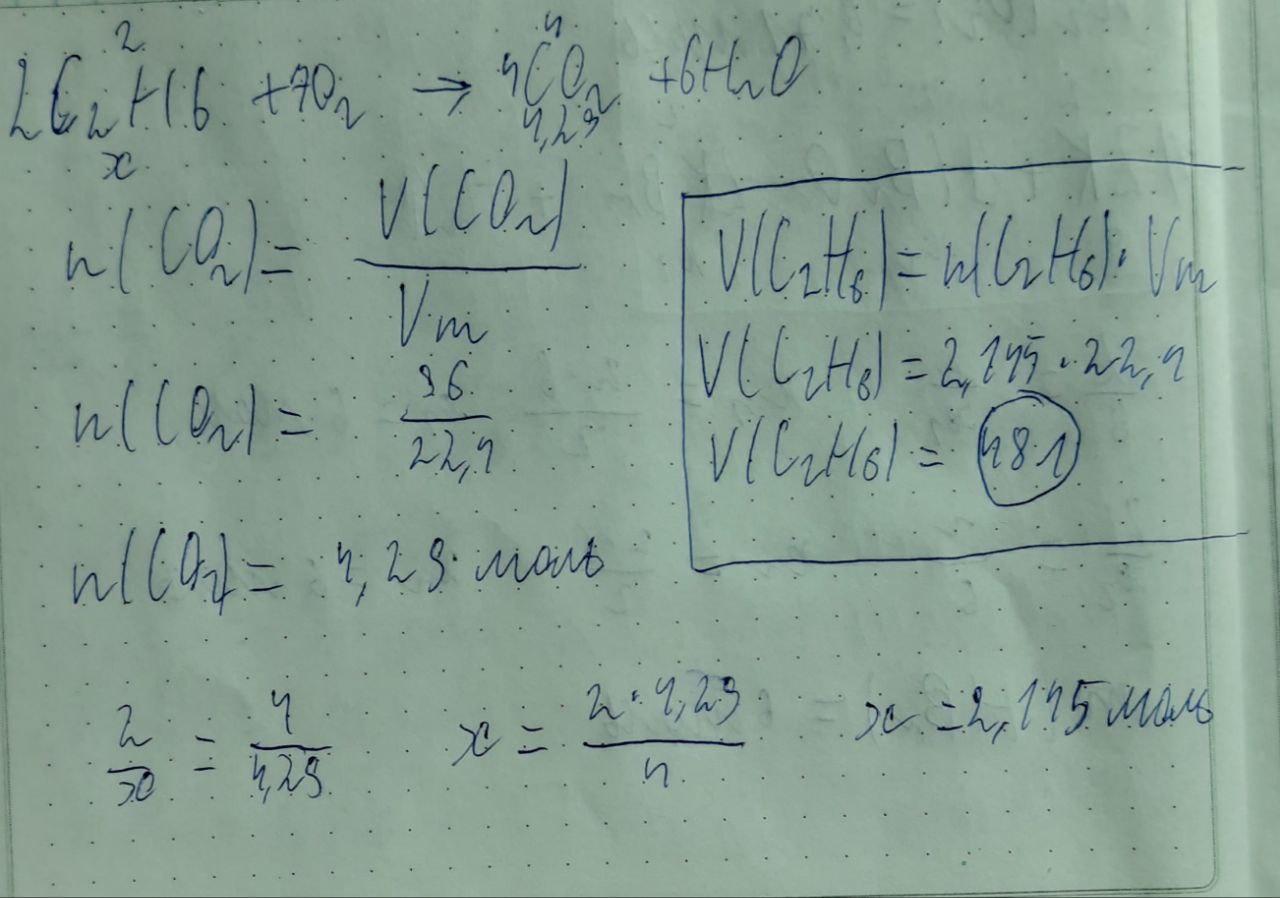 2 4
2C₂H6 + 7O₂ → 4CO₂ + 6H₂O
x 4,29
n(CO₂) = V(CO₂) / Vm
n(CO₂) = 96 / 22,4
n(CO₂) = 4,29 моль
2/x = 4/4,29 x = 2·4,29 / 4 x = 2,145 моль
V(C₂H₆) = n(C₂H₆) · Vm
V(C₂H₆) = 2,145 · 22,4
V(C₂H₆) = 48л